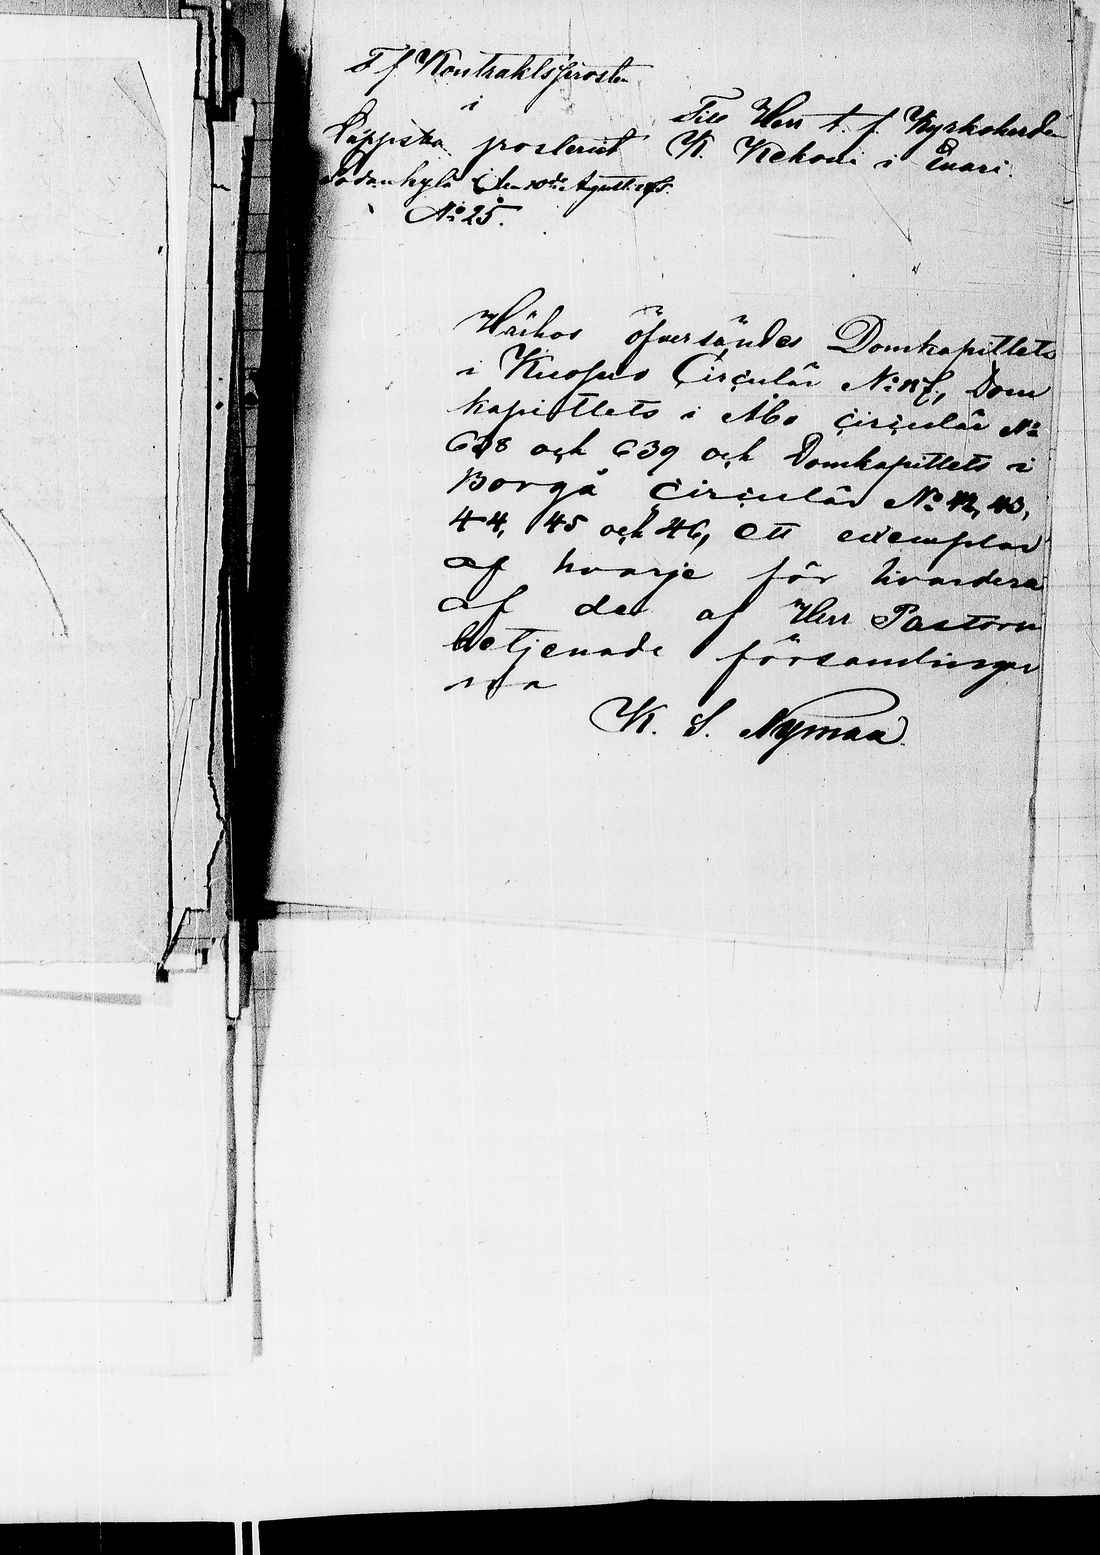 T f Kontraktsprosten
i
Lappska prosteriet
Sodankylä den 10de Agusti
No 25.
Till Herr t. f. Kyrkoherden
K. Kekoni i Enari.
Härhos öfversändes Domkapitlets
i Kuopio Circulär No, Dom
kapitlets i Åbo circulär No
638 och 639 och Domkapitlets i
Borgå Circulär No 42, 43,
44, 45 och 46, ett exemplar
af hvarje för hvardera
af de af Herr Pastorn
betjenade församlingar
na
K. S. Nyman